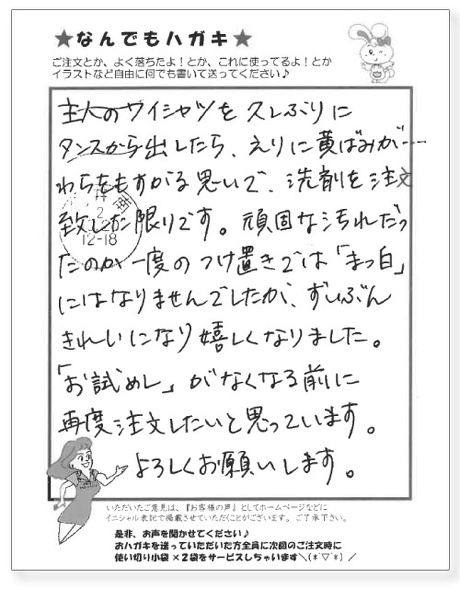 ★なんでもハガキ★
ご注文とか、よく落ちたよ！とか、これに使ってるよ！とか
イラストなど自由に何でも書いて送ってください♪
主人のワイシャツを久しぶりに
タンスから出したら、えりに黄ばみが……
わらをもすがる思いで、洗剤を注文
致した限りです。頑固な汚れだっ
たのか一度のつけ置きでは「まっ白」
にはなりませんでしたが、ずいぶん
きれいになり嬉しくなりました。
「お試めし」がなくなる前に
再度注文したいと思っています。
よろしくお願いします。
12-18
いただいたご意見は、『お客様の声』としてホームページなどに
イニシャル表記で掲載させていただくことがございます。ご了承下さい。
是非、お声を聞かせてください♪
おハガキを送っていただいた方全員に次回のご注文時に
使い切り小袋×２袋をサービスしちゃいます＼(*ﾟ▽ﾟ*)／